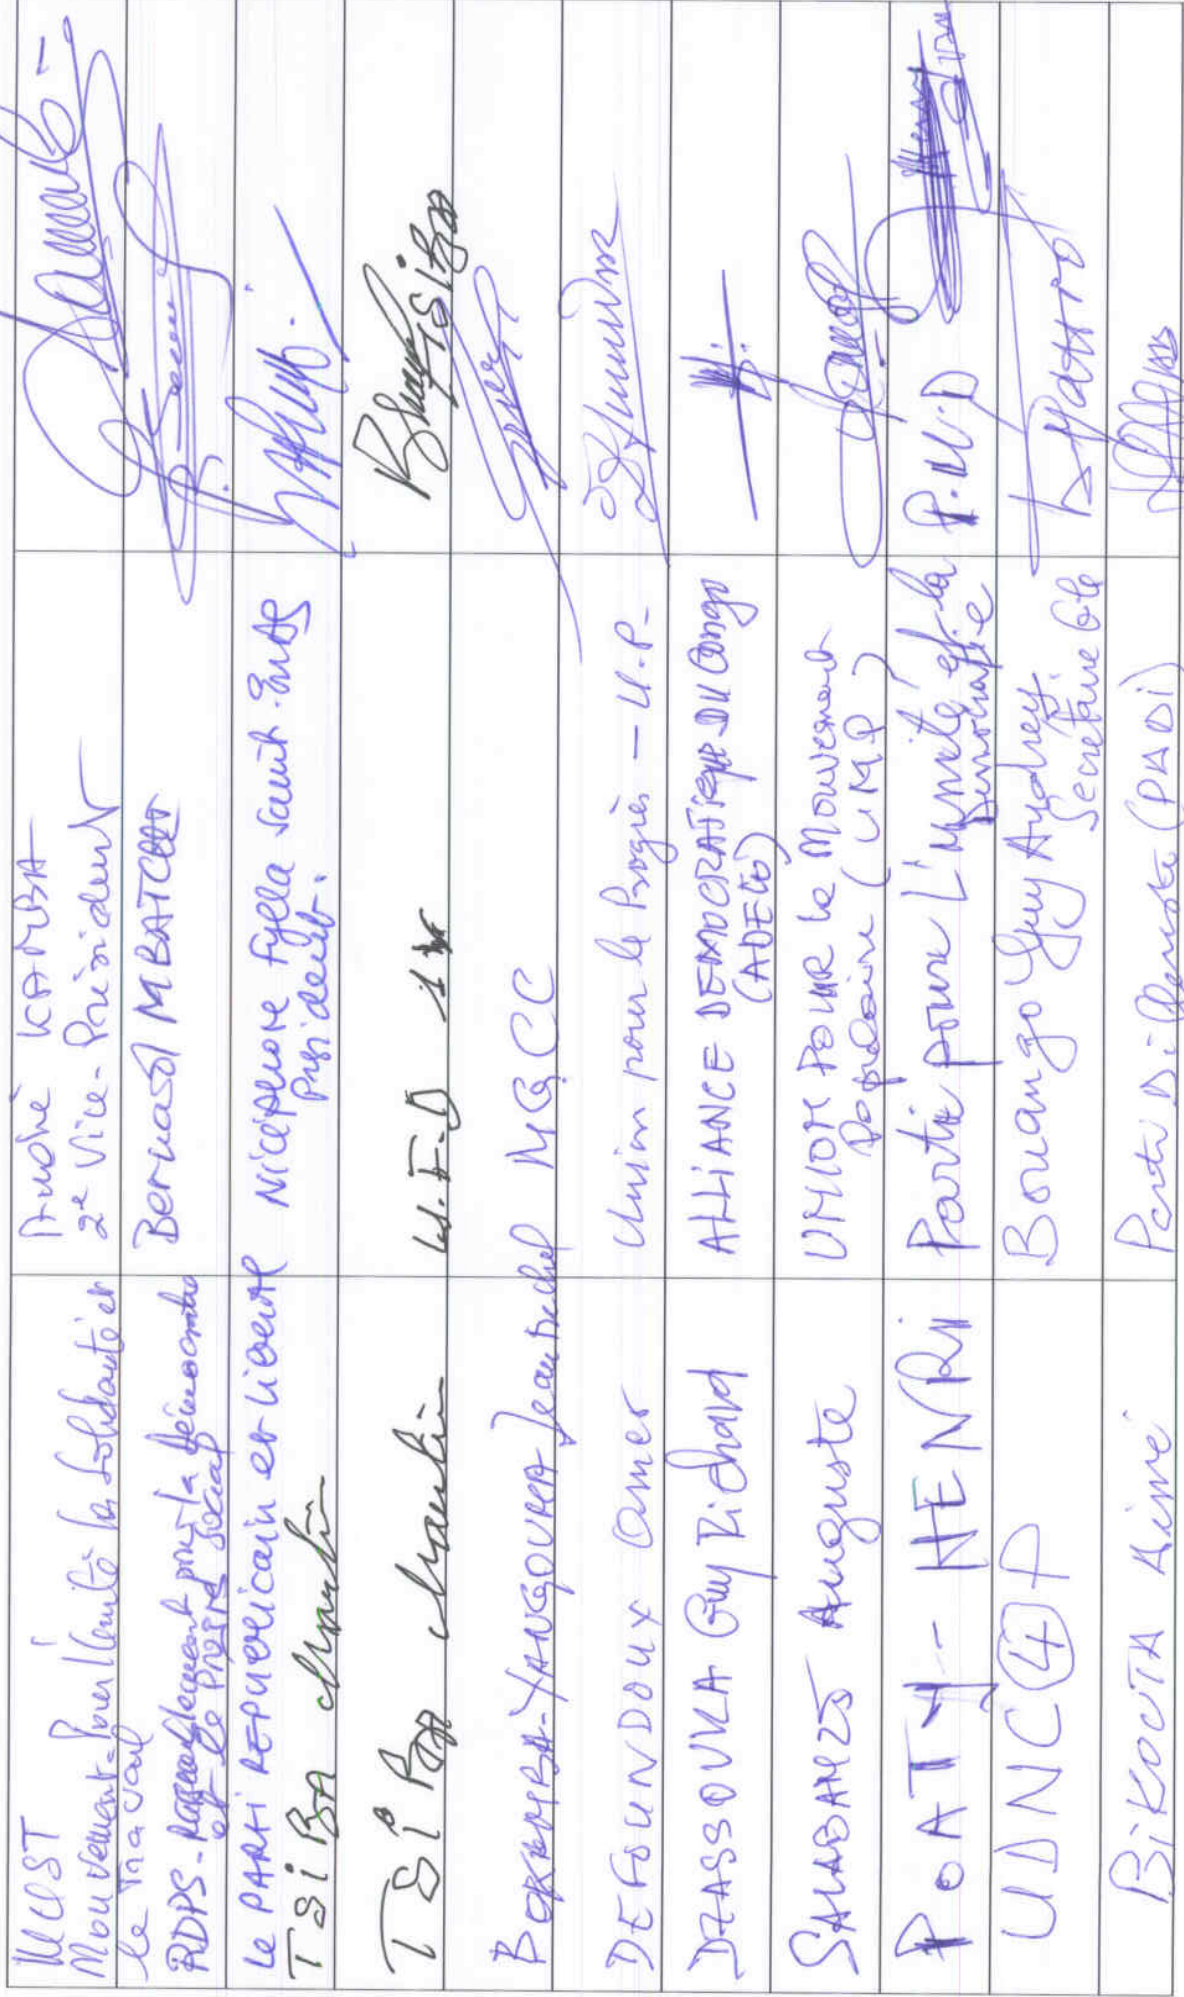 MUST
André KAMBA
Mouvement pour l'Unité la Solidarité et
2e Vice-Président
le Travail
RDPS-Rassemblement pour la Démocratie
et le Progrès Social
Bernasol MBATCHI
Le PARTI REPUBLICAIN et LIBERAL
Nicéphore Fylla Saint-Eudes
Président.
TSIBA Martin
TSIBA Martin
U.F.D
BOKAMBA-YANGOUMA Jean Michel
MGCC
DEFOUNDOUX Omer
Union pour le Progrès - U.P.
DZASSOUKA Guy Richard
ALLIANCE DEMOCRATIQUE DU Congo
(ADECO)
Auguste
UNION POUR le Mouvement
Populaire (UMP)
POATY-HENRI
Parti pour L'Unité et la
Démocratie
P.U.D
UDNC
Bouango Guy Audrey.
Secrétaire Gle
BiKOUTA Aimé
(PADI)